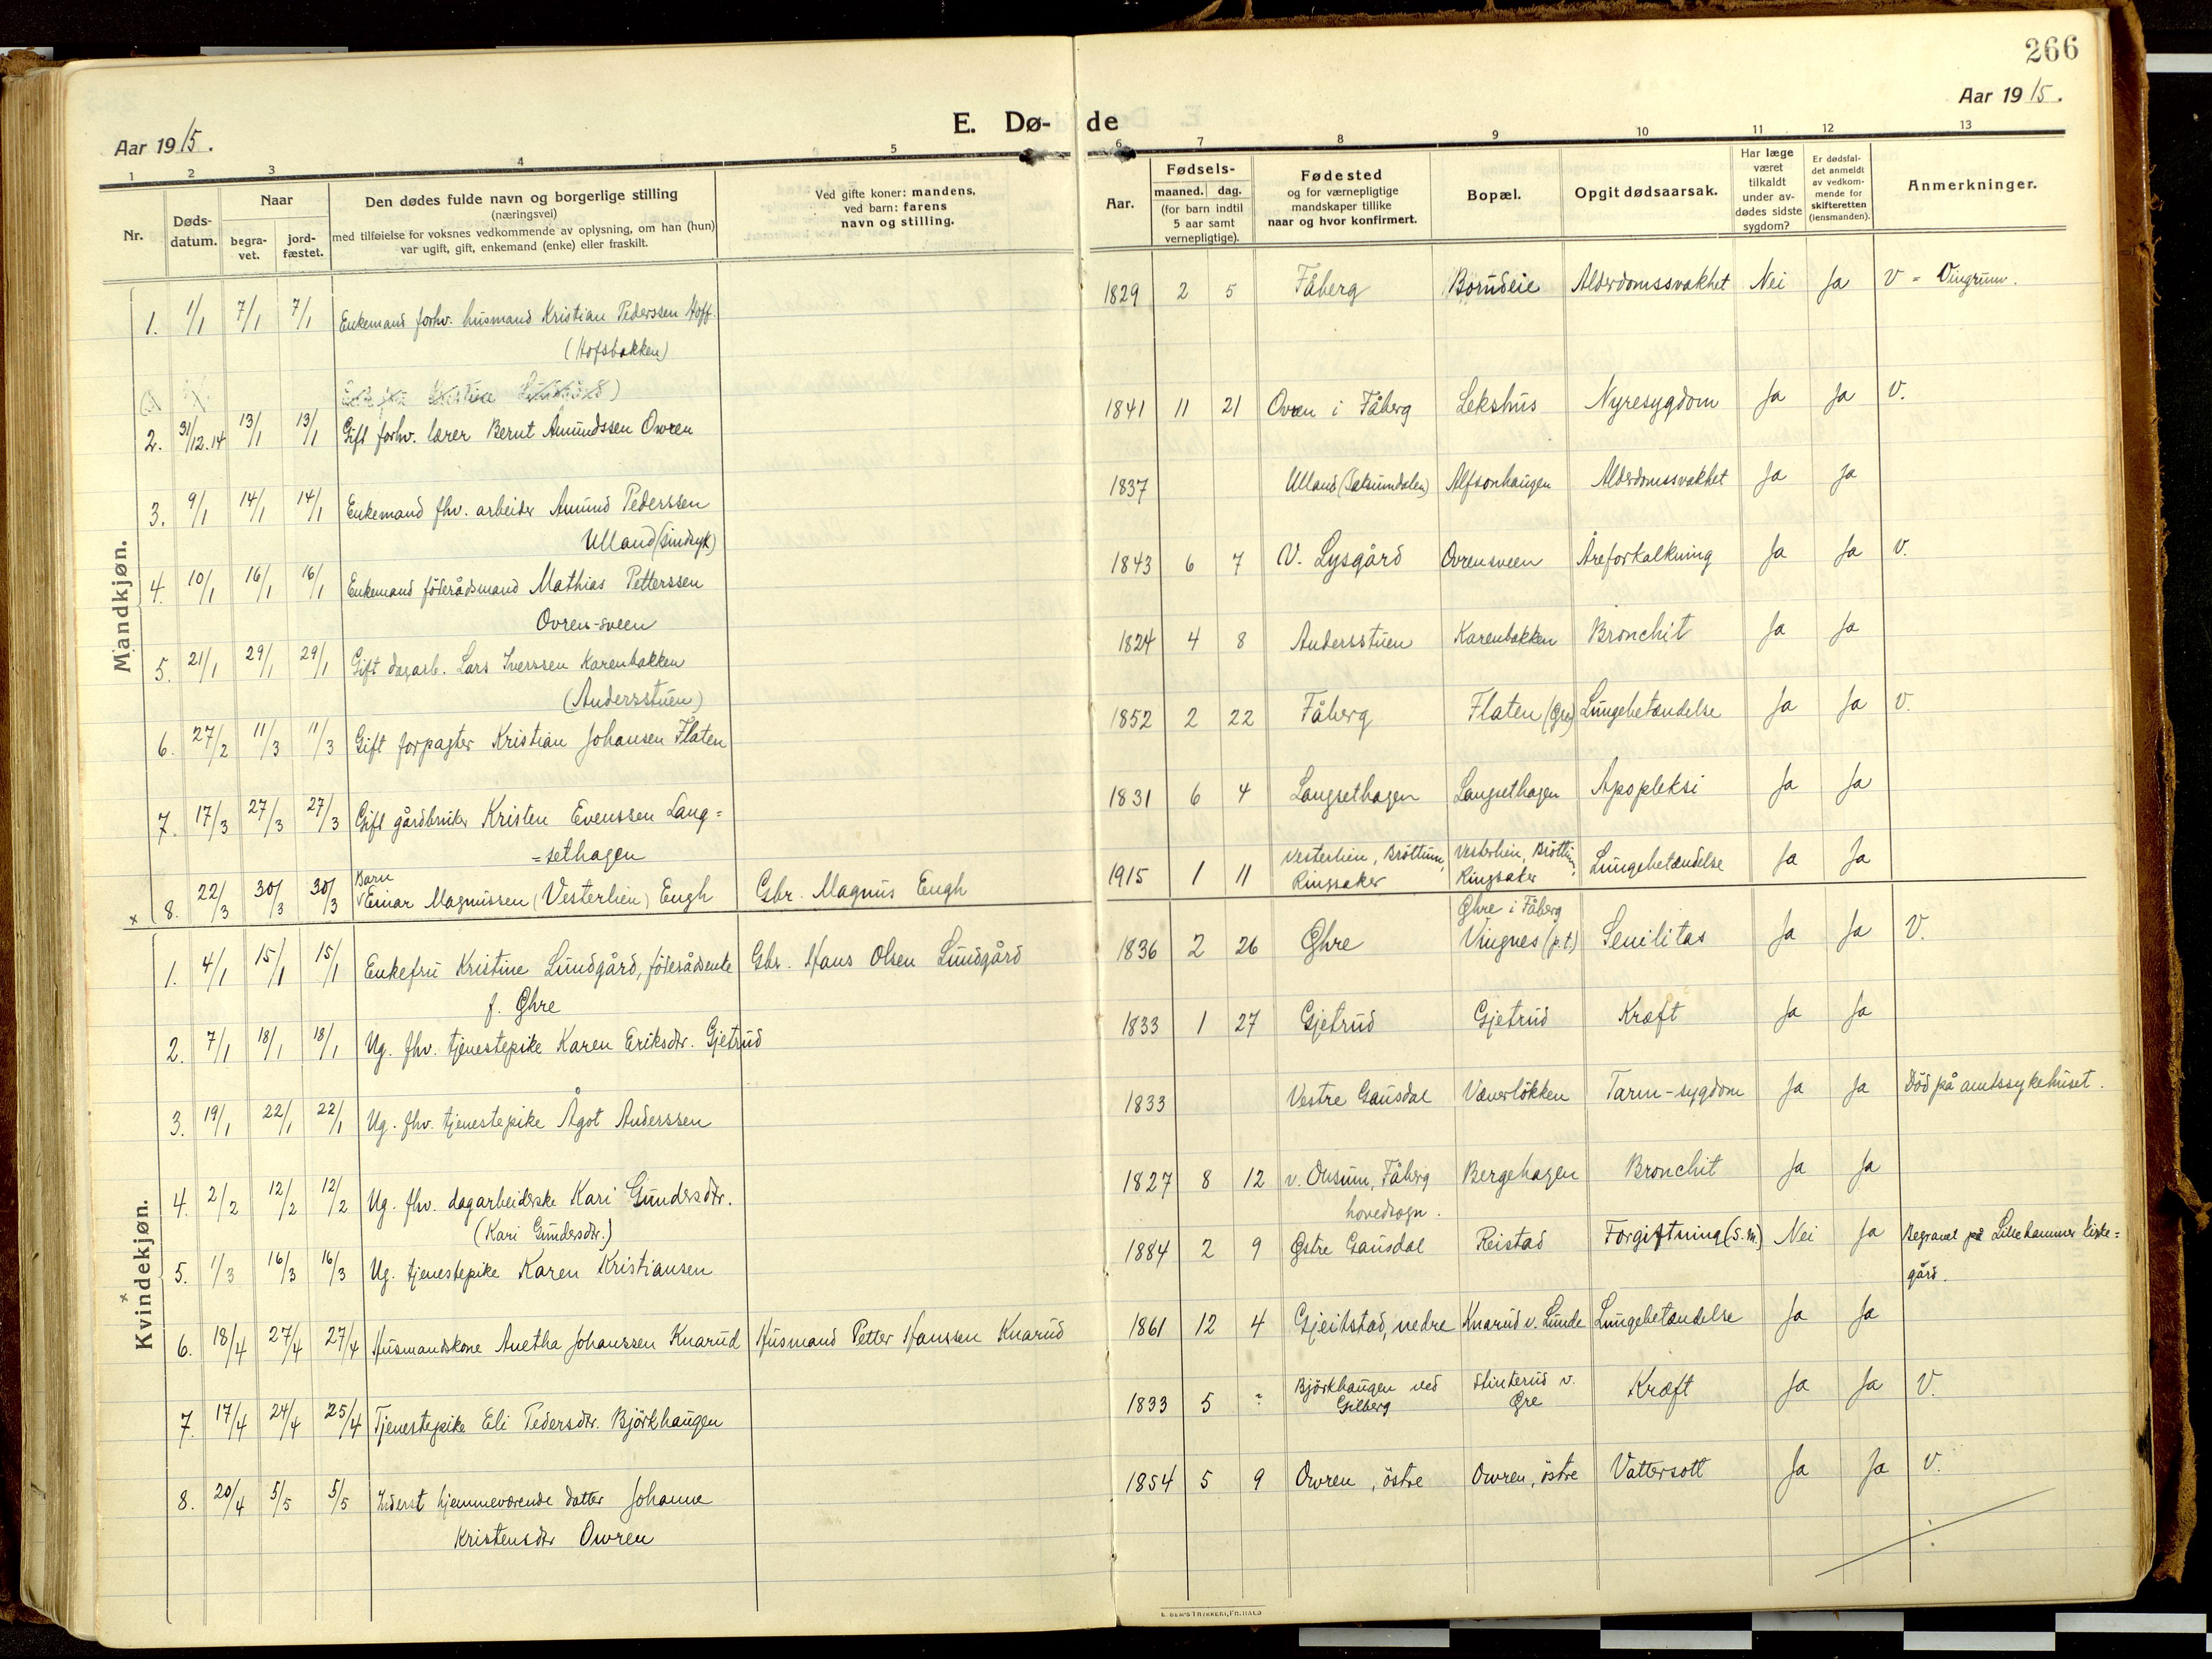 266
Aar 1915.
Aar 1915.
E. Dø-
de
1 2 3 4 5
6 7 8 9 10 11 12 13
Nr.
Døds-
datum.
Naar
begra-
vet.
jord-
fæstet.
Den dødes fulde navn og borgerlige stilling
(næringsvei)
med tilføielse for voksnes vedkommende av oplysning, om han (hun)
var ugift, gift, enkemand (enke) eller fraskilt.
Ved gifte koner: mandens,
ved barn: farens
navn og stilling.
Aar.
Fødsels-
maaned. dag.
(for barn indtil
5 aar samt
vernepligtige).
Fødested
og for værnepligtige
mandskaper tillike
naar og hvor konfirmert.
Bopæl.
Opgit dødsaarsak.
Har læge
været
tilkaldt
under av-
dødes sidste
sygdom?
Er dødsfal-
det anmeldt
av vedkom-
mende for
skifteretten
(lensmanden).
Anmerkninger.
Mandkjøn.
1. 1/1 7/1 7/1 Enkemand forhv. husmand Kristian Pederssen Hoff. 1829 2 5 Fåberg Borudeie Alderdomssvakhet Nei Ja V = Vingrum.
(Hofsbakken)
Kristine Lundgård)
2. 31/12.14 13/1 13/1 Gift forhv. lærer Bernt Amundssen Owren 1841 11 21 Ovren i Fåberg Lekshus Nyresygdom Ja Ja V.
3. 9/1 14/1 14/1 Enkemand fhv. arbeider Amund Pederssen 1837 Ulland (Saksumdalen) Alfsonhaugen Alderdomssvakhet Ja Ja
Ulland (sindsyk)
4. 10/1 16/1 16/1 Enkemand föderådsmand Mathias Petterssen 1843 6 7 V. Lysgård Ovrensveen Åreforkalkning Ja Ja V.
Ovren-sveen
5. 21/1 29/1 29/1 Gift dagarb. Lars Iverssen Karenbakken 1824 4 8 Andersstuen Karenbakken Bronchit Ja Ja
(Andersstuen)
6. 27/2 11/3 11/3 Gift forpagter Kristian Johansen Flaten 1852 2 22 Fåberg Flaten (Øre) Lungebetændelse Ja Ja V.
7. 17/3 27/3 27/3 Gift gårdbruker Kristen Evenssen Lang= 1831 6 4 Langsethagen Langsethagen Apopleksi Ja Ja
=sethagen
Barn
x 8. 22/3 30/3 30/3 Einar Magnussen (Vesterlien) Engh Gbr. Magnus Engh 1915 1 11 Vesterlien, Brøttum, Ringsaker Vesterlien, Brøttum, Ringsaker Lungebetændelse Ja Ja
x
Kvindekjøn.
1. 4/1 15/1 15/1 Enkefru Kristine Lundgård, föderådsenke Gbr. Hans Olsen Lundgård 1836 2 26 Øhre Øhre i Fåberg Vingnes (p.t.) Senilitas Ja Ja V.
f. Øhre
2. 7/1 18/1 18/1 Ug. fhv. tjenestepike Karen Eriksdtr. Gjetrud 1833 1 27 Gjetrud Gjetrud Kræft Ja Ja
3. 19/1 22/1 22/1 Ug. fhv. tjenestepike Ågot Anderssen 1833 Vestre Gausdal Væverløkken Tarm-sygdom Ja Ja Död på amtssykehuset.
4. 2/2 12/2 12/2 Ug. fhv. dagarbeiderske Kari Gundersdtr. 1827 8 12 v. Onsum, Fåberg hovedsogn. Bergehagen Bronchit Ja Ja
(Kari Gundersdtr.)
5. 1/3 16/3 16/3 Ug. tjenestepike Karen Kristiansen 1884 2 9 Østre Gausdal Reistad Forgiftning (S.m.) Nei Ja Begravet på Lillehammer kirke=
gård.
6. 18/4 27/4 27/4 Husmandskone Anetha Johanssen Knarud Husmand Petter Hanssen Knarud 1861 12 4 Gjeitstad, nedre Knarud v. Lunde Lungebetændelse Ja Ja
7. 17/4 24/4 25/4 Tjenestepike Eli Pedersdtr. Björkhaugen 1833 5 Björkhaugen ved Gilberg Slinterud v. Øre Kræft Ja Ja V.
8. 20/4 5/5 5/5 Inderst hjemmeværende datter Johanne 1854 5 9 Owren, östre Owren, östre Vattersott Ja Ja V.
Kristensdtr Owren
E. SEM'S TRYKKERI, FR.HALD